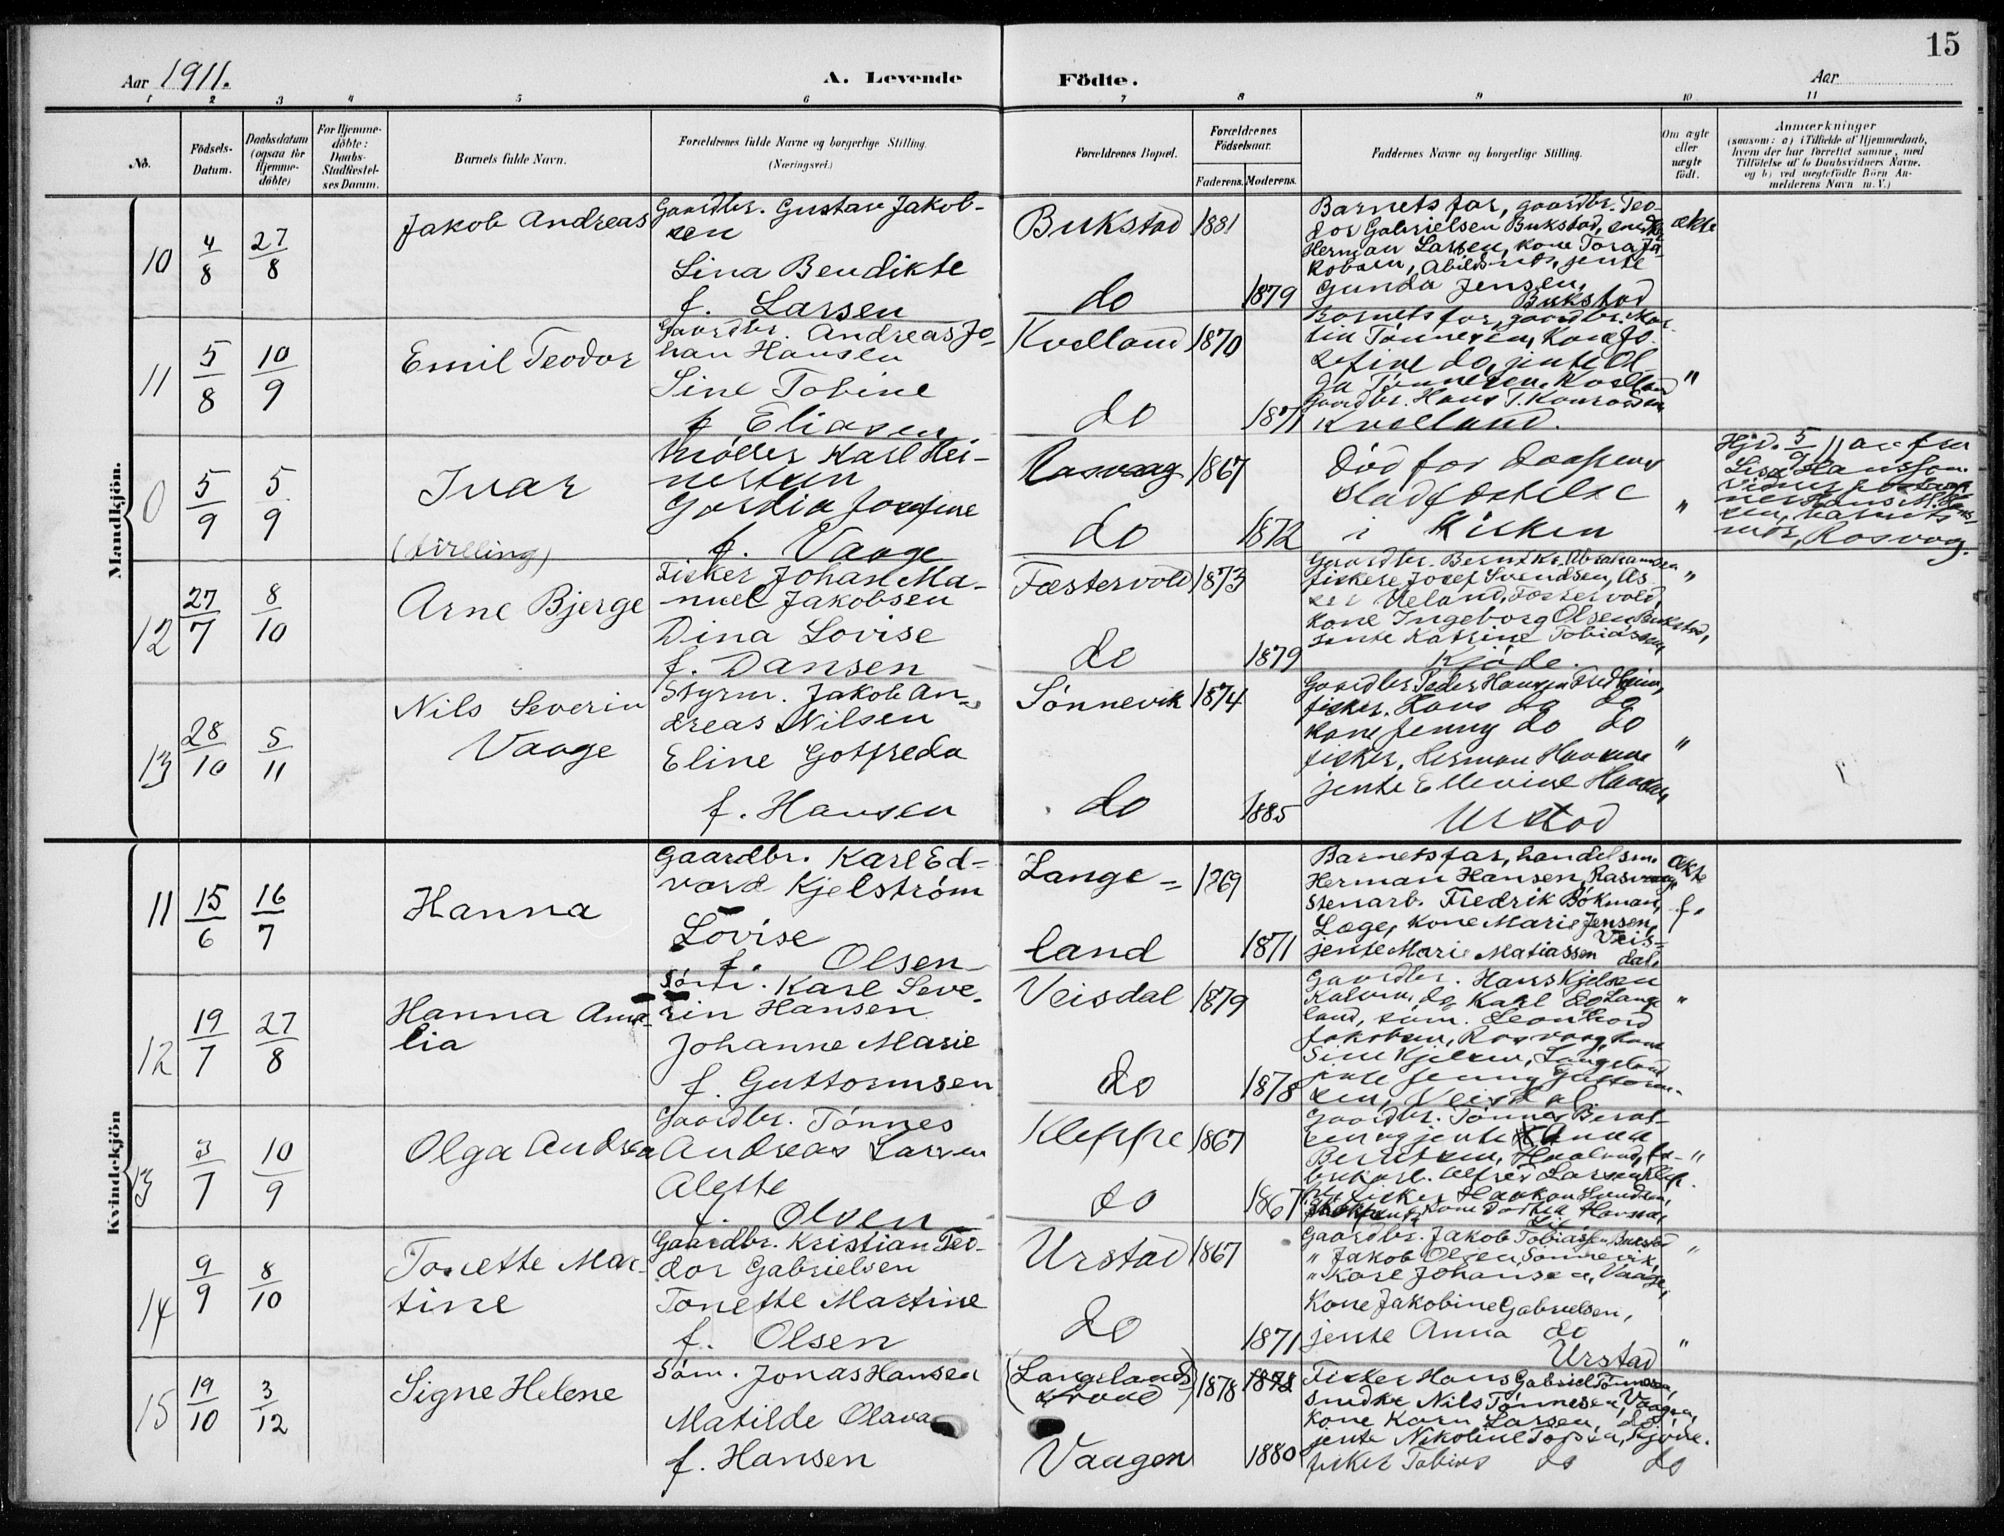 15
Aar 1911.
A. Levende
Födte.
Aar
1 2 3 4 5 6 7 8 9 10 11
No.
Födsels-
Datum.
Daabsdatum
(ogsaa for
Hjemme-
döbte)
For Hjemme-
döbte:
Daabs-
Stadfæstel-
ses Datum.
Barnets fulde Navn.
Forældrenes fulde Navne og borgerlige Stilling.
(Næringsvei.)
Forældrenes Bopæl.
Forældrenes
Födselsaar.
Faderens. Moderens.
Faddernes Navne og borgerlige Stilling.
Om ægte
eller
uægte
födt.
Anmærkninger
(saasom: a) i Tilfælde af Hjemmedaab,
hvem der har forrettet samme, med
Tilföielse af to Daabsvidners Navne.
og b) ved uægtefödte Börn An-
melderens Navn m. V.)
Mandkjön.
10
4/8
27/8
Jakob Andreas
Gaardbr. Gustav Jakob-
sen
Lina Bendikte
f. Larsen
Bukstad
do
1881
1879
Barnets far, gaardbr. Teo-
dor Gabrielsen Bukstad,
Herman Larsen, kone Tora Ja-
kobsen, jente
Gunda Jensen,
Bukstad
ækte
11
5/8
10/9
Emil Teodor
Gaardbr. Andreas Jo-
han Hansen
Sine Tobine
f. Eliasen
Kvelland
do
1870
1871
Barnets far, gaardbr. Mar-
tin Tønnesen, Kone Jo-
sefine do, jente Ol-
ga Tønnesen, Kvelland
Gaardbr. Hans T. Konradsen
Kvelland.
"
0
5/9
5/9
Ivar
(tvilling)
Karl Hei-
Josefine
f. Vaage
Rasvaag
do
1867
1872
Død før daapens
stadfæstelse
i Kirken
"
Hjd. 5/9 11 av fru
Rasvag.
12
27/7
8/10
Arne Bjerge
Fisker Johan Ma-
nuel Jakobsen
Dina Lovise
f. Dansen
Fæstervold
do
1873
1879
Gaardbr. Berndt Kr. Abrahamsen
fiskere Josef Svendsen, As-
Ueland, Fæstervold,
kone Ingeborg Olsen, Bukstad,
jente Katrine Tobiassen,
Kjøde.
"
13
28/10
5/11
Nils Severin
Vaage
Styrm. Jakob An-
dreas Nilsen
Eline Gotfreda
f. Hansen
Sønnevik
do
1874
1885
Gaardbr. Peder Hansen
fisker. Hans do do
Kone Jenny do do
fisker, Herman
jente Ellevine
Urstad
"
Kvindekjön
11
15/6
16/7
Hanna
Gaardbr. Karl Ed-
vard Kjelstrøm
Lovise
f. Olsen
Lange =
land
1869
1871
Barnets far, handelsm.
Herman Hansen, Rasvaag,
Stenarb. Fredrik Bökman,
Læge, kone Marie Jensen,
Veis-
jente Marie Matiassen dal.
ækte
f.
12
19/7
27/8
Hanna Ama-
lia
Søm. Karl Seve-
rin Hansen
Johanne Marie
f. Guttormsen
Veisdal
do
1879
1878
Gaardbr. Hans Kjelsen
Karl do Lange
land, søm. Leonhard
Jakobsen, Rasvaag, kone
Sine Kjelsen, Langeland
jente Jenny Guttorm-
sen, Veisdal.
"
13
3/7
10/9
Olga Andrea
Gaardbr. Tønnes
Andreas Larsen
Alette
f. Olsen
Kleppe
do
1867
1867
Gaardbr. Tønnes Bernt-
sen og jente Anna
Berntsen,
Alfred Larsen
fisker Haakon
"
14
9/9
8/10
Tonette Mar-
tine
Gaardbr. Kristian Teo-
dor Gabrielsen
Tonette Martine
f. Olsen
Urstad
do
1867
1871
Gaardbr. Jakob Tobiassen Bukstad
" Jakob Olsen, Sønnevik,
" Karl Johansen, Vaage,
Kone Jakobine Gabrielsen,
jente Anna do
Urstad
"
"
15
19/10
3/12
Signe Helene
Søm. Jonas Hansen
Matilde Olava
f. Hansen
(Langelands
strand)
Vaagen
1878
1878
1880
Fisker Hans Gabriel Tønnesen,
snedker Nils Tønnesen, Vaagen,
Kone Karn Larsen, do
jente Nikoline
fisker Tobias do do